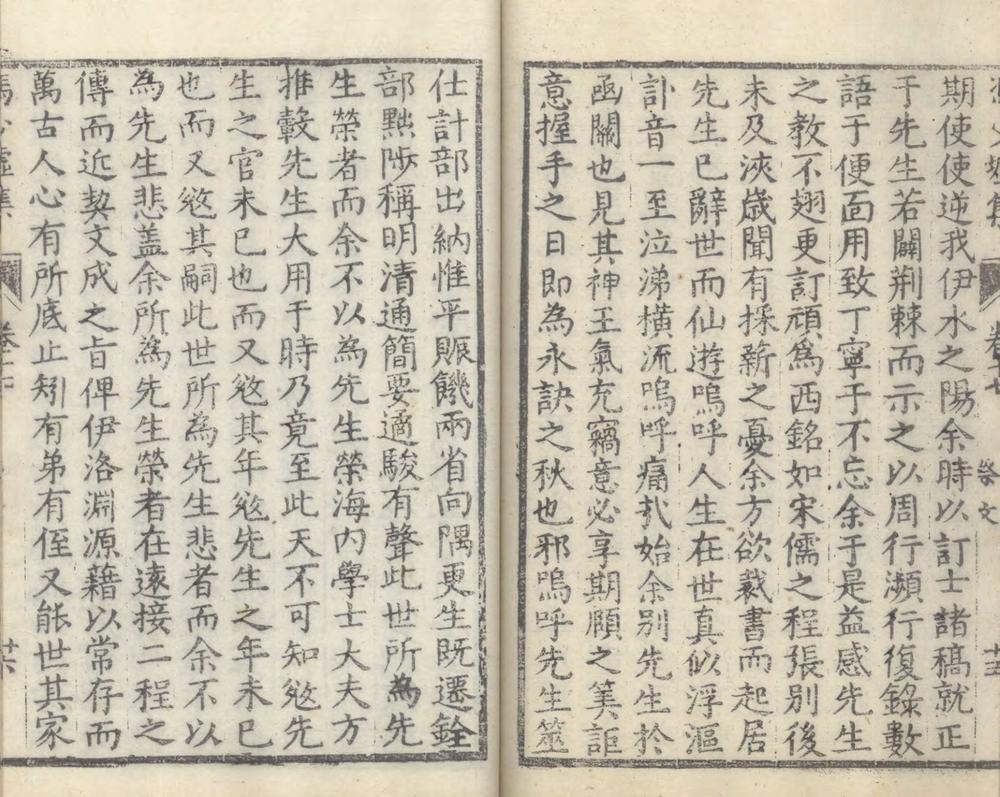 卷十七 祭文
期使使逆我伊水之陽余時以訂士諸稿就正
于先生若闢荆棘而示之以周行瀕行復錄數
語于便面用致丁寧于不忘余于是益感先生
之教不翅更訂頑為西銘如宋儒之程張別後
未及浹歲聞有採薪之憂余方欲裁書而起居
先生已辭世而仙遊嗚呼人生在世真似浮漚
訃音一至泣涕橫流嗚呼痛㦲始余別先生於
函關也見其神王氣充竊意必享期頤之筭詎
意握手之日即為永訣之秋也邪嗚呼先生筮
仕計部出納惟平賑饑兩省向隅更生既遷銓
部黜陟稱明清通簡要適駿有聲此世所為先
生榮者而余不以為先生榮海内學士大夫方
推轂先生大用于時乃竟至此天不可知慭先
生之官未已也而又慭其年慭先生之年未已
也而又慭其嗣此世所為先生悲者而余不以
為先生悲盖余所為先生榮者在遠接二程之
傳而近契文成之旨俾伊洛淵源藉以常存而
萬古人心有所底止矧有弟有侄又能世其家
馮少墟集